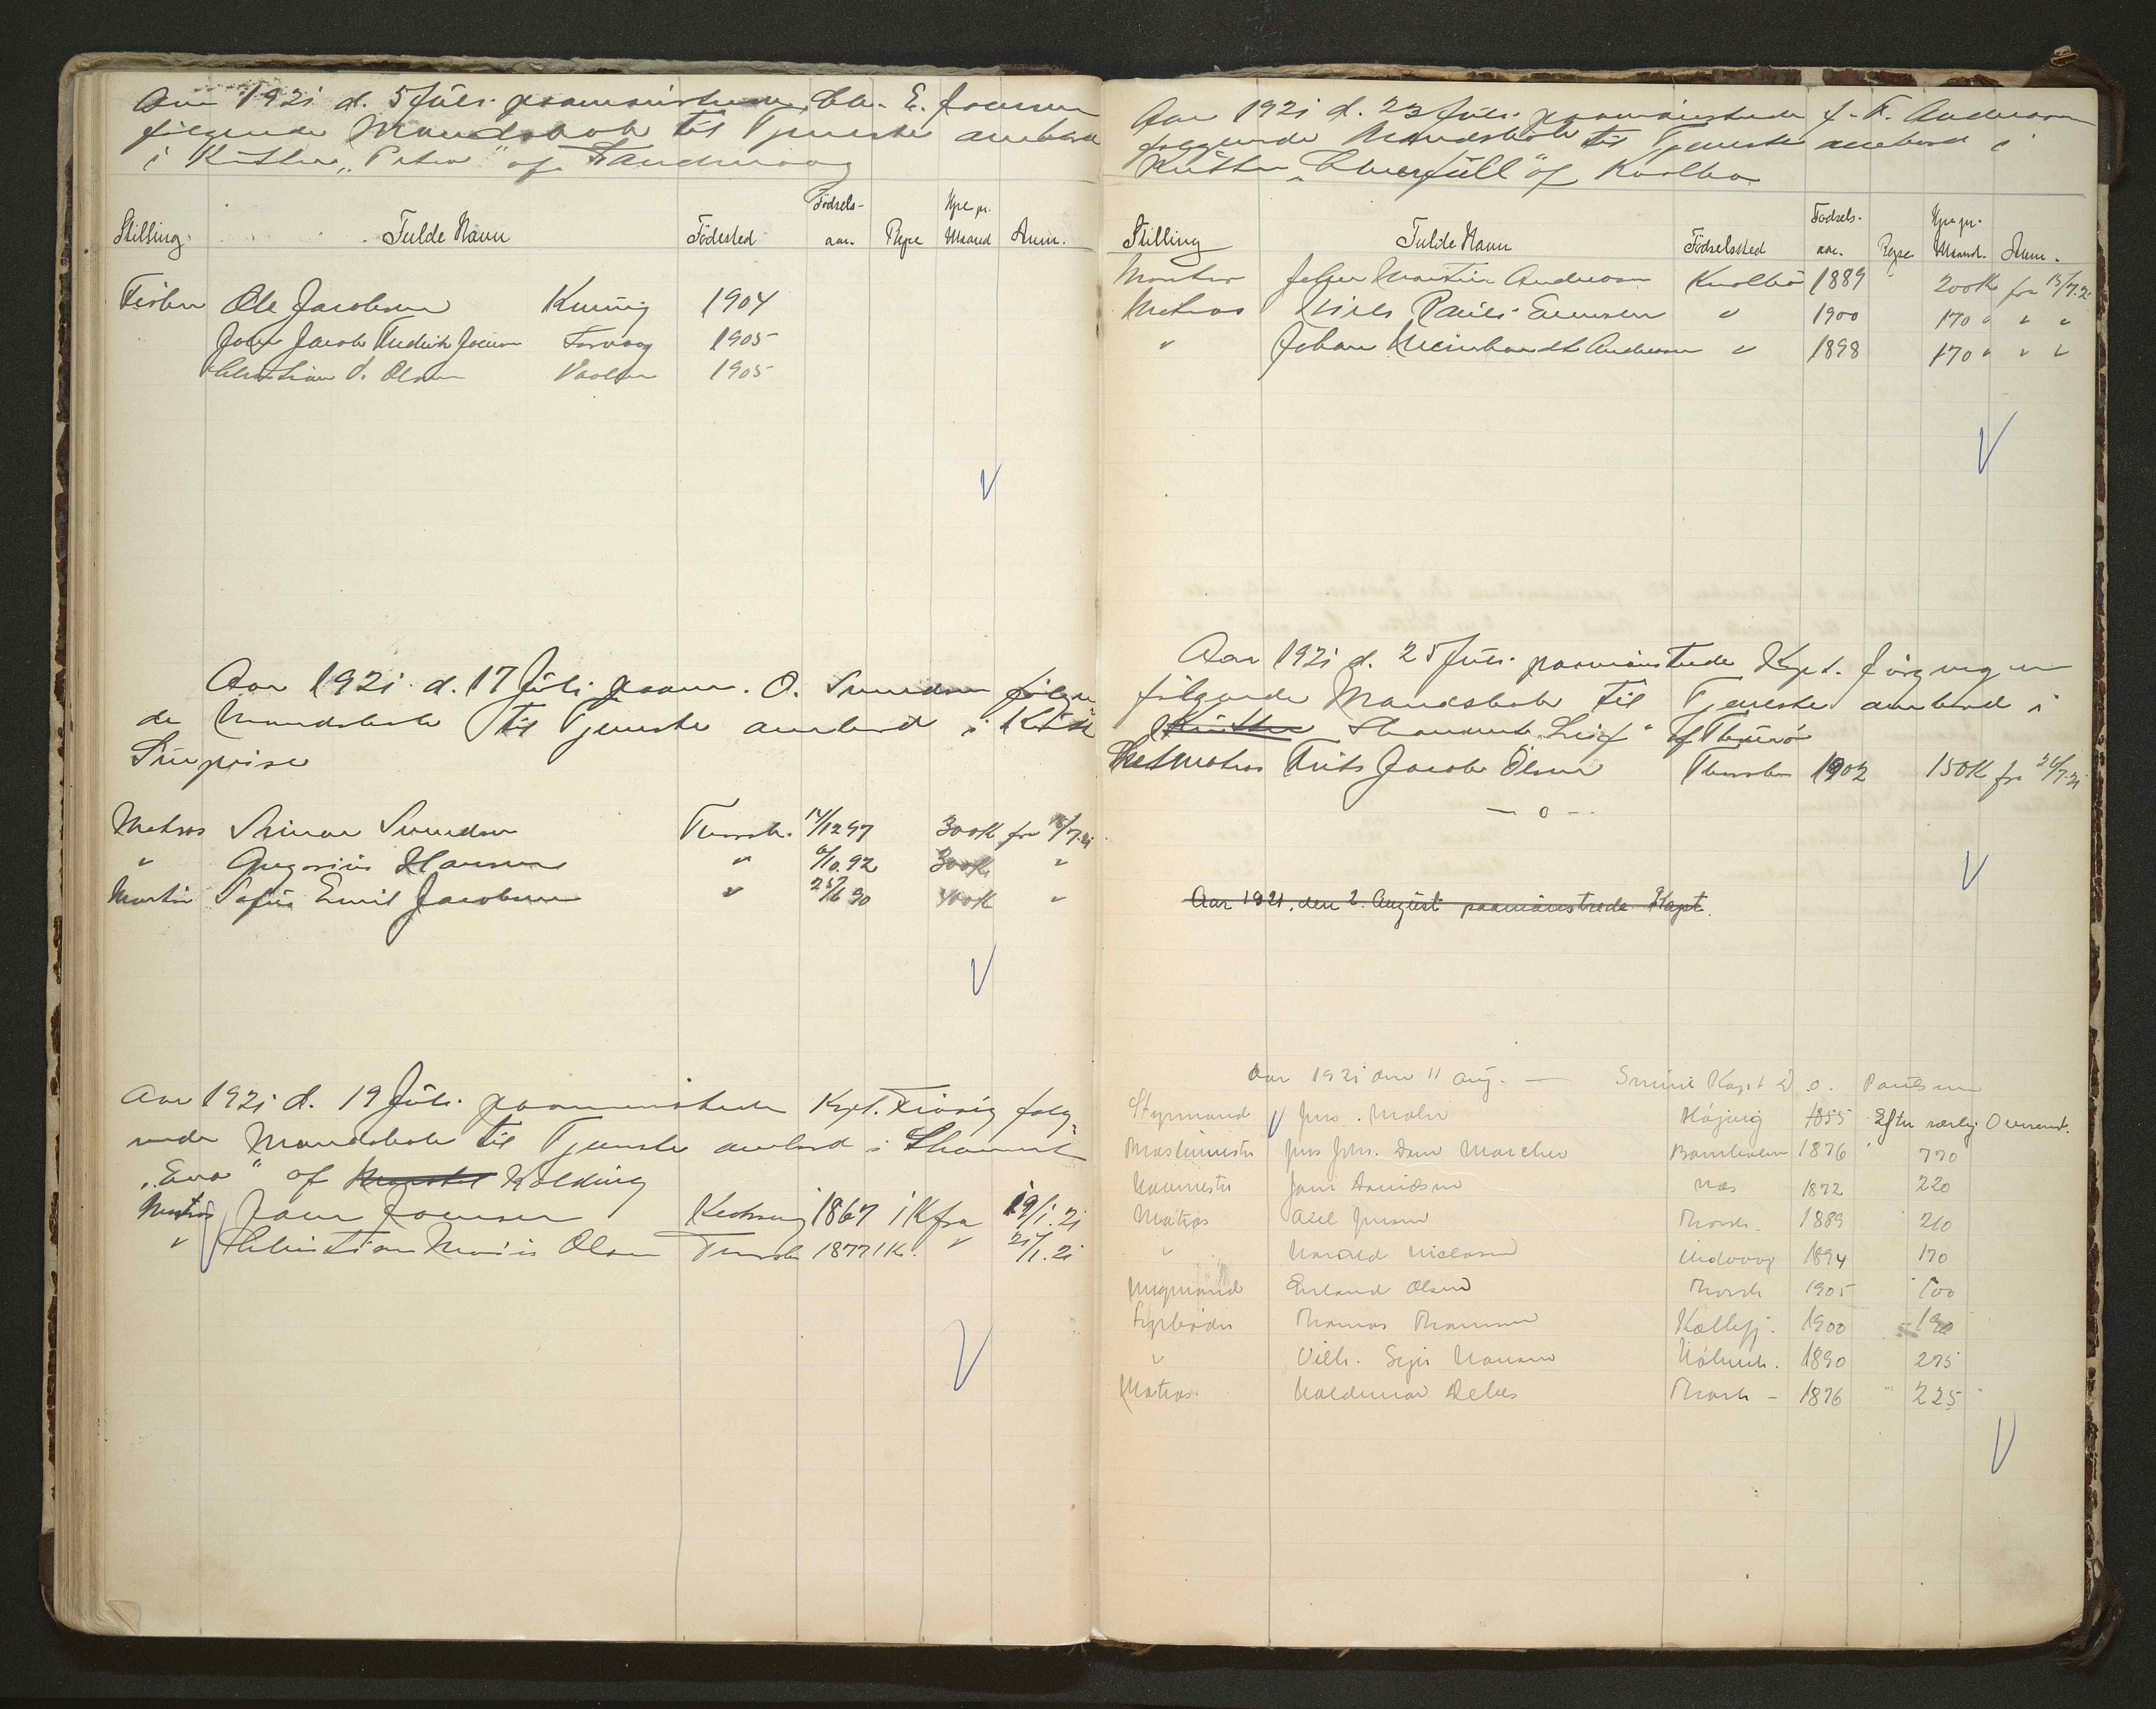 Aar 1921 d. 5 Juli paamønstrede Chr. E. Joensen
følgende Mandskab til Tjeneste ombord
i Kutter „Petra" af Sandevaag
Stilling. Fulde Navn Fødested Fødsels-aar. Rejse Hyre pr. Maaned Anm.
Fisker Ole Jacobsen 1904
Jacob Fredrik Joensen Sorvaag 1905
Christian J. Olsen 1905
Aar 1921 d. 17 Juli paam. O. Svendsen følgen
de Mandskab til Tjeneste ombord i
Surprise
Matros Svendsen Thorsh. 14/12 97 300K fra 18/7.21
" Gregorius Hansen " 6/10.92 300K "
Emil Jacobsen " 400K "
Aar 1921 d. 19 Juli paamønstrede Kapt. følg-
ende Mandskab til Tjeneste ombord i Skonnert
„Eva" af Kolding
Matros Joen Joensen 1867 1K fra
" Christian Olsen Thorsh 1877 1K. "
Aar 1921 d. 23 Juli paamønstrede J. F. Andreasen
følgende Mandskab til Tjeneste ombord i
Kutter „Cheerfull" af Kvalbø
Stilling Fulde Navn Fødselssted Fødsels-aar. Rejse Hyre pr. Maaned. Anm.
Martin Andreasen Kvalbø 1889 200K fra 15/7.21
Matros Niels " 1900 170 " " "
" Johan Meinhardt Andreasen " 1898 170 " " "
Aar 1921 d. 25 Juli paamønstrede Kapt. Jørgensen
følgende Mandskab til Tjeneste ombord i
Kutter Skonnert „Leif" af Thurø
Letmatros Frits Jacob Olsen Thorsh 1902 150K fra 26/7.21
— o —
Aar 1921, den 2. August paamønstrede Kapt.
Aar 1921 den 11 Aug. — Smiril Kapt D. O. Poulsen
Styrmand Jens. Højrig 1855 Efter særlig Overensk.
Maskinmester Jens Johs. Dam Marcher Bornholm 1876 770
Hovmester Davidsen Næs 1872 220
Matros Axel Jensen Thorsh- 1889 210
" Harald Niclasen Midvaag 1894 170
Jungmand Erland Olsen Thorsh 1905 100
Fyrbøder Thomas Thomsen Kollefj. 1900 190
" Vilh. Hansen 1890 275
Matros. Valdemar Debes Thorsh - 1876 225